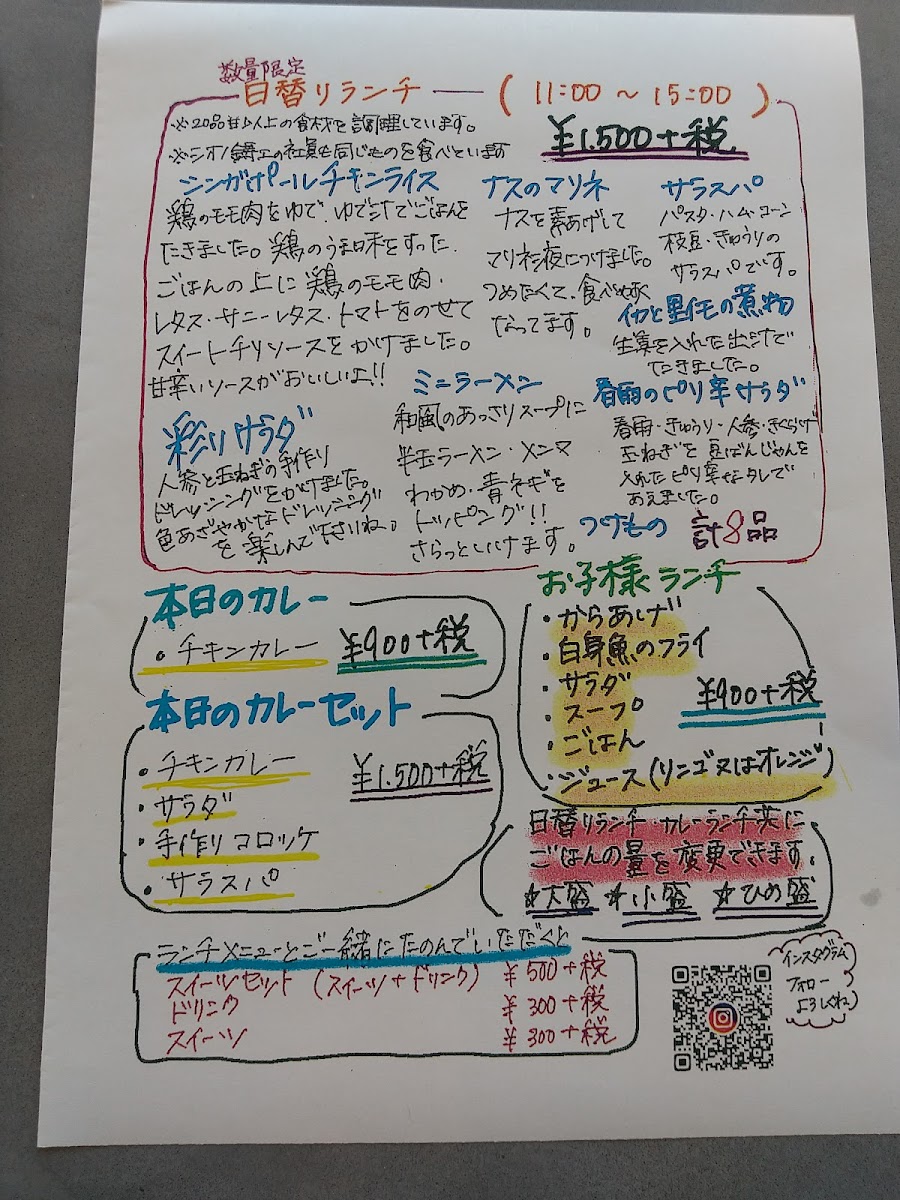 数量限定
日替りランチ
(11:00 ~ 15:00)
※20品目以上の食材を調理しています。
※シオノ鋳工の社員も同じものを食べています
¥1.500+税
シンガポールチキンライス
鶏のモモ肉をゆで、ゆで汁でごはんを
たきました。鶏のうま味をすった
ごはんの上に鶏のモモ肉・
レタス・サニーレタス・トマトをのせて
スイートチリソースをかけました。
甘辛いソースがおいしいよ!!
ナスのマリネ
ナスを素あげして
マリネ液につけました。
つめたくて、食べやすく
なってます。
サラスパ
パスタ・ハム・コーン
枝豆・きゅうりの
サラスパです。
イカと里芋の煮物
生姜を入れた出汁で
たきました。
彩りサラダ
人参と玉ねぎの手作り
ドレッシングをかけました。
色あざやかなドレッシング
を楽しんで下さいね。
ミニラーメン
和風のあっさりスープに
半玉ラーメン・メンマ
わかめ・青ネギを
トッピング!!
さらっといけます。
春雨のピリ辛サラダ
春雨・きゅうり・人参・きくらげ
玉ねぎを豆ばんじゃんを
入れたピリ辛なタレで
あえました。
つけもの
計8品
本日のカレー
・チキンカレー ¥900+税
本日のカレーセット
・チキンカレー
¥1.500+税
・サラダ
・手作りコロッケ
・サラスパ
お子様ランチ
・からあげ
・白身魚のフライ
・サラダ
・スープ
¥900+税
・ごはん
・ジュース(リンゴ又はオレンジ)
日替りランチ・カレーランチ共に
ごはんの量を変更できます。
☆大盛 ☆小盛 ☆ひめ盛
ランチメニューとご一緒にたのんでいただくと
スイーツセット (スイーツ+ドリンク) ¥500+税
ドリンク ¥300+税
スイーツ ¥300+税
インスタグラム
フォロー
よろしくね)